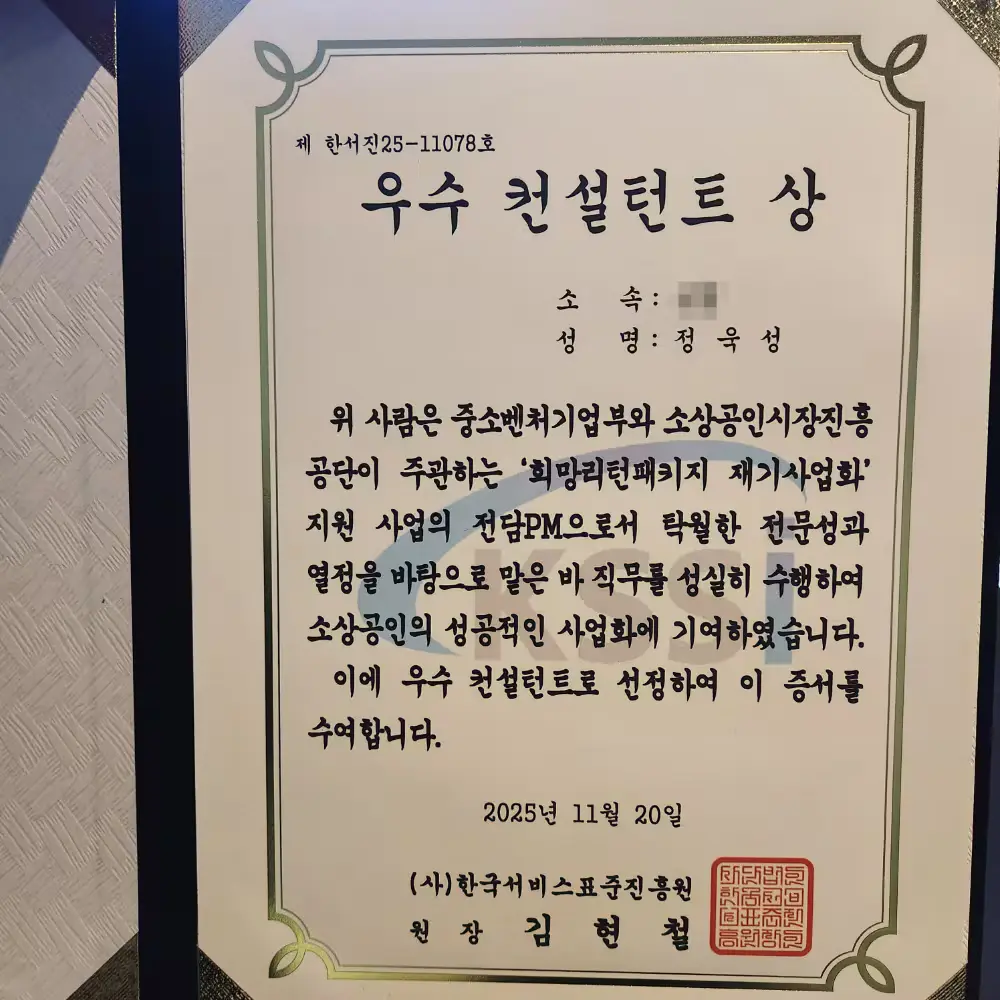 제 한서진25-11078호
우수 컨설턴트 상
소 속 :
성 명 : 정 욱 성
위 사람은 중소벤처기업부와 소상공인시장진흥
공단이 주관하는 '희망리턴패키지 재기사업화'
지원 사업의 전담PM으로서 탁월한 전문성과
열정을 바탕으로 맡은 바 직무를 성실히 수행하여
소상공인의 성공적인 사업화에 기여하였습니다.
이에 우수 컨설턴트로 선정하여 이 증서를
수여합니다.
KSSi
2025년 11월 20일
(사)한국서비스표준진흥원
원 장 김 현 철